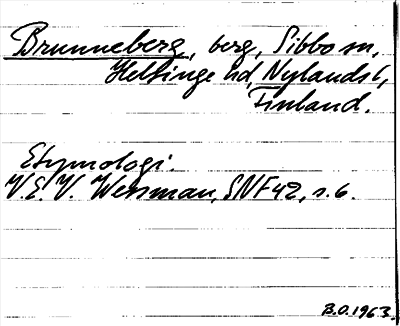 Brunneberg, berg, Sibbo sn,
Helsinge hd, Nylands l,
Finland.
Etymologi.
V.E.V. Wessman, SNF 42, s. 6.
B.O. 1963.